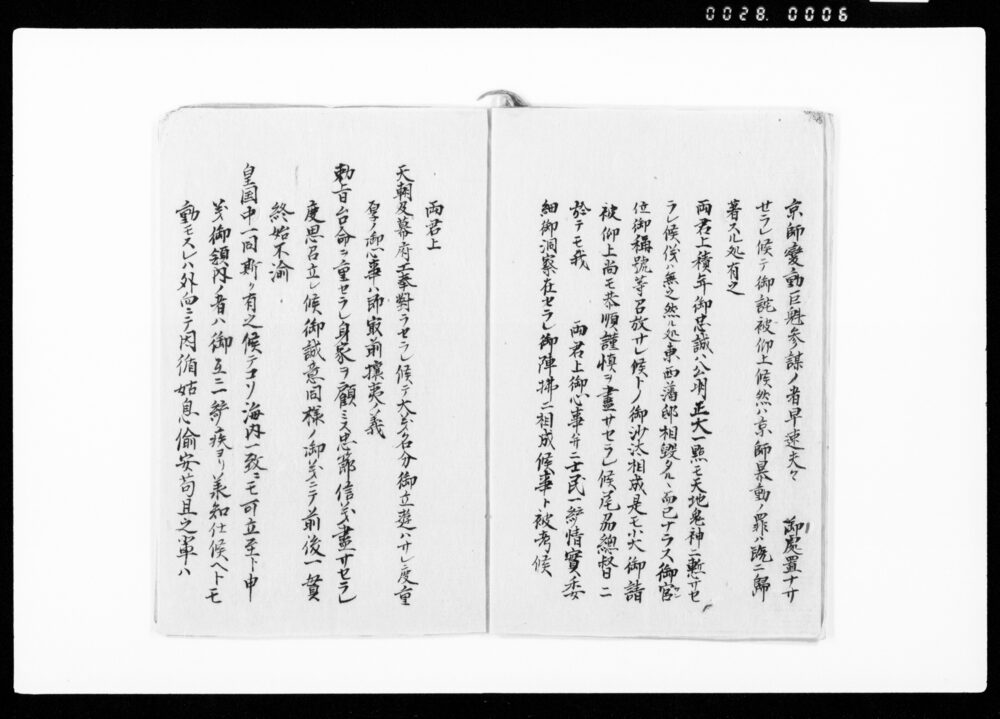 0028. 0006
京師變動巨魁參謀ノ者早速夫々　御處置ナサ
セラレ候テ御詫被仰上候然ハ京師暴動ノ罪ハ既ニ歸
著スル処有之
両君上積年御忠誠ハ公明正大一點モ天地鬼神ニ慙サセ
ラレ候儀ハ無之然ル処東西藩邸相毀タルヽ而已ナラス御官
位御稱號等召放サレ候トノ御沙汰相成是モ小大御詰
被仰上尚モ恭順謹慎ヲ盡サセラレ候尾㔟總督ニ
於テモ我　両君上御心事并ニ士民一統情實委
細御洞察在セラレ御陣拂ニ相成候事ト被考候
両君上
天朝及幕府エ奉對ラセラレ候テ大義名分御立遊ハサレ度重
厚ノ御心事ハ即最前攘夷ノ義
勅旨台命ヲ重セラレ身家ヲ顧ミス忠節信義盡サセラレ
度思召立レ候御誠意同様ノ御義ニテ前後一貫
終始不渝
皇国中一同斯ク有之候テコソ海内一致ニモ可立至ト申
義御領内ノ者ハ御互ニ一統疾ヨリ承知仕候ヘトモ
動モスレハ外向ニテ因循姑息偸安苟且之軍ハ